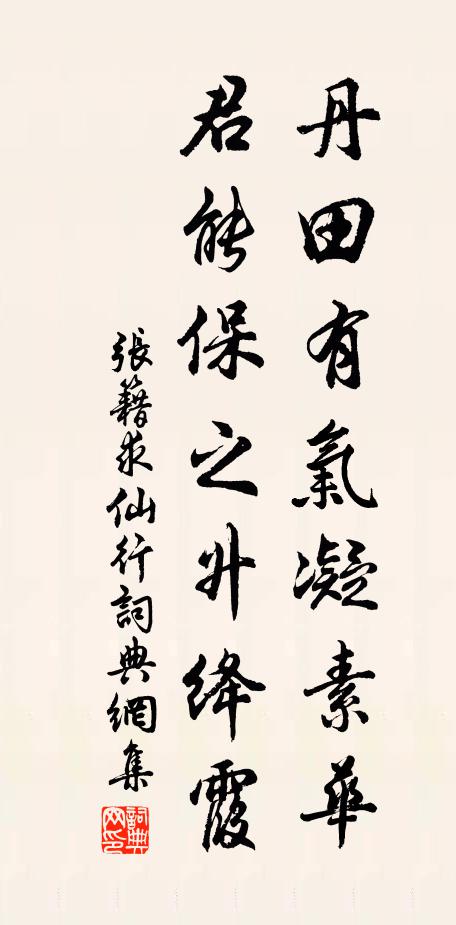 丹田有氣凝素華
君能保之升絳霞
張籍求仙行詞典網集
詞典网印